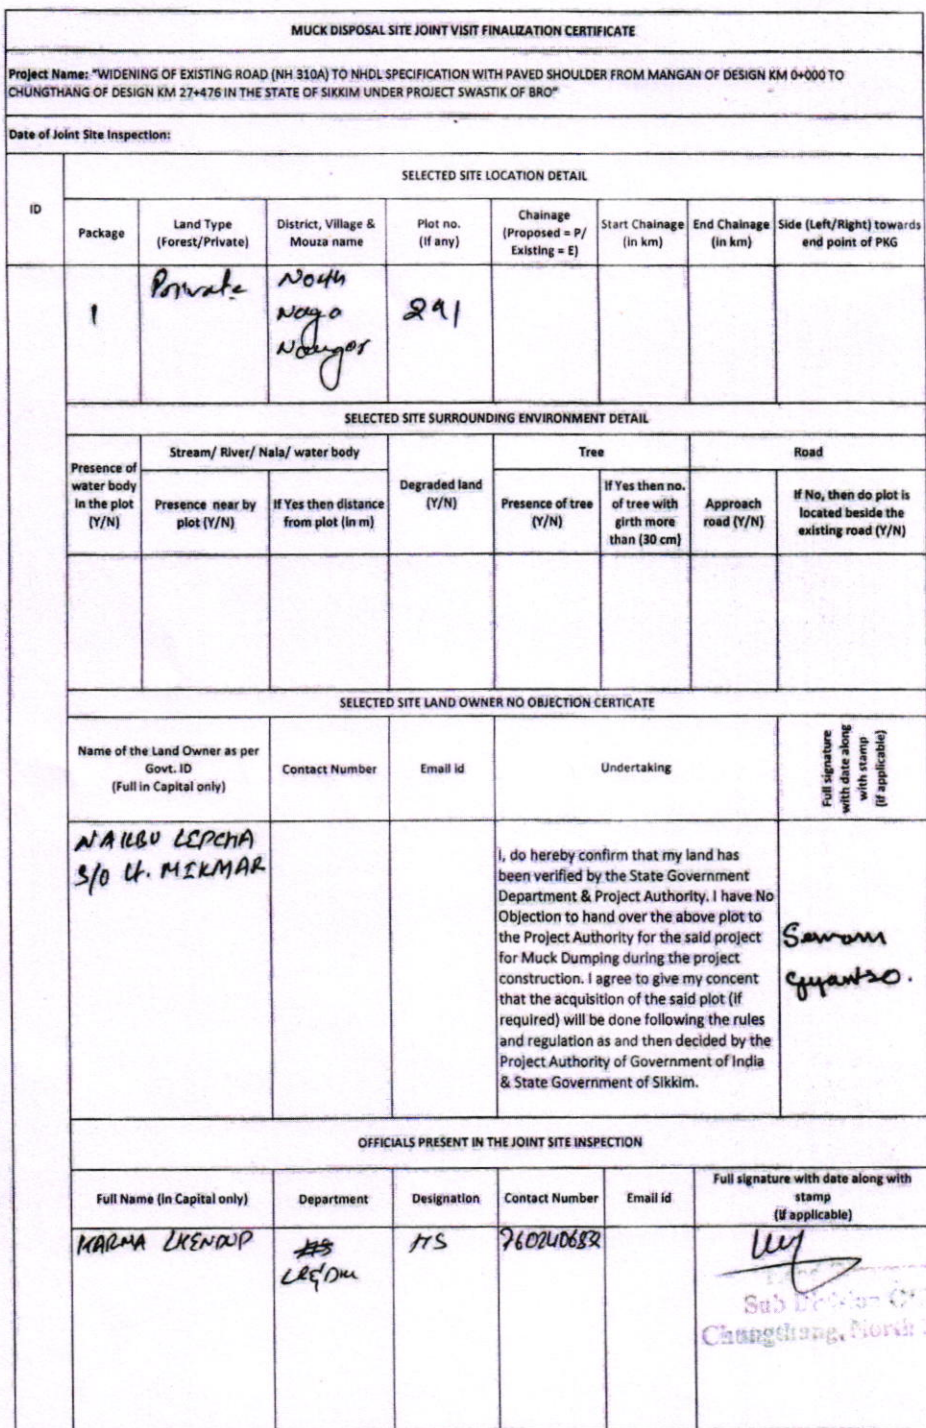 MUCK DISPOSAL SITE JOINT VISIT FINALIZATION CERTIFICATE
Project Name: "WIDENING OF EXISTING ROAD (NH 310A) TO NHDL SPECIFICATION WITH PAVED SHOULDER FROM MANGAN OF DESIGN KM 0+000 TO
CHUNGTHANG OF DESIGN KM 27+476 IN THE STATE OF SIKKIM UNDER PROJECT SWASTIK OF BRO"
Date of Joint Site Inspection:
ID
SELECTED SITE LOCATION DETAIL
Package
Land Type
(Forest/Private)
District, Village &
Mouza name
Plot no.
(If any)
Chainage
(Proposed = P/
Existing = E)
Start Chainage
(in km)
End Chainage
(in km)
Side (Left/Right) towards
end point of PKG
1
Private
North
Naga
291
SELECTED SITE SURROUNDING ENVIRONMENT DETAIL
Presence of
water body
in the plot
(Y/N)
Stream/ River/ Nala/ water body
Presence near by
plot (Y/N)
If Yes then distance
from plot (in m)
Degraded land
(Y/N)
Tree
Presence of tree
(Y/N)
If Yes then no.
of tree with
girth more
than (30 cm)
Road
Approach
road (Y/N)
If No, then do plot is
located beside the
existing road (Y/N)
SELECTED SITE LAND OWNER NO OBJECTION CERTICATE
Name of the Land Owner as per
Govt. ID
(Full in Capital only)
Contact Number
Email id
Undertaking
Full signature
with date along
with stamp
(if applicable)
LEPCHA
S/O Lt. MIKMAR
I, do hereby confirm that my land has
been verified by the State Government
Department & Project Authority. I have No
Objection to hand over the above plot to
the Project Authority for the said project
for Muck Dumping during the project
construction. I agree to give my concent
that the acquisition of the said plot (if
required) will be done following the rules
and regulation as and then decided by the
Project Authority of Government of India
& State Government of Sikkim.
Gyantso.
OFFICIALS PRESENT IN THE JOINT SITE INSPECTION
Full Name (in Capital only)
Department
Designation
Contact Number
Email id
Full signature with date along with
stamp
(if applicable)
KARMA LHENDUP
HS
Sub Division
Chungthang, North